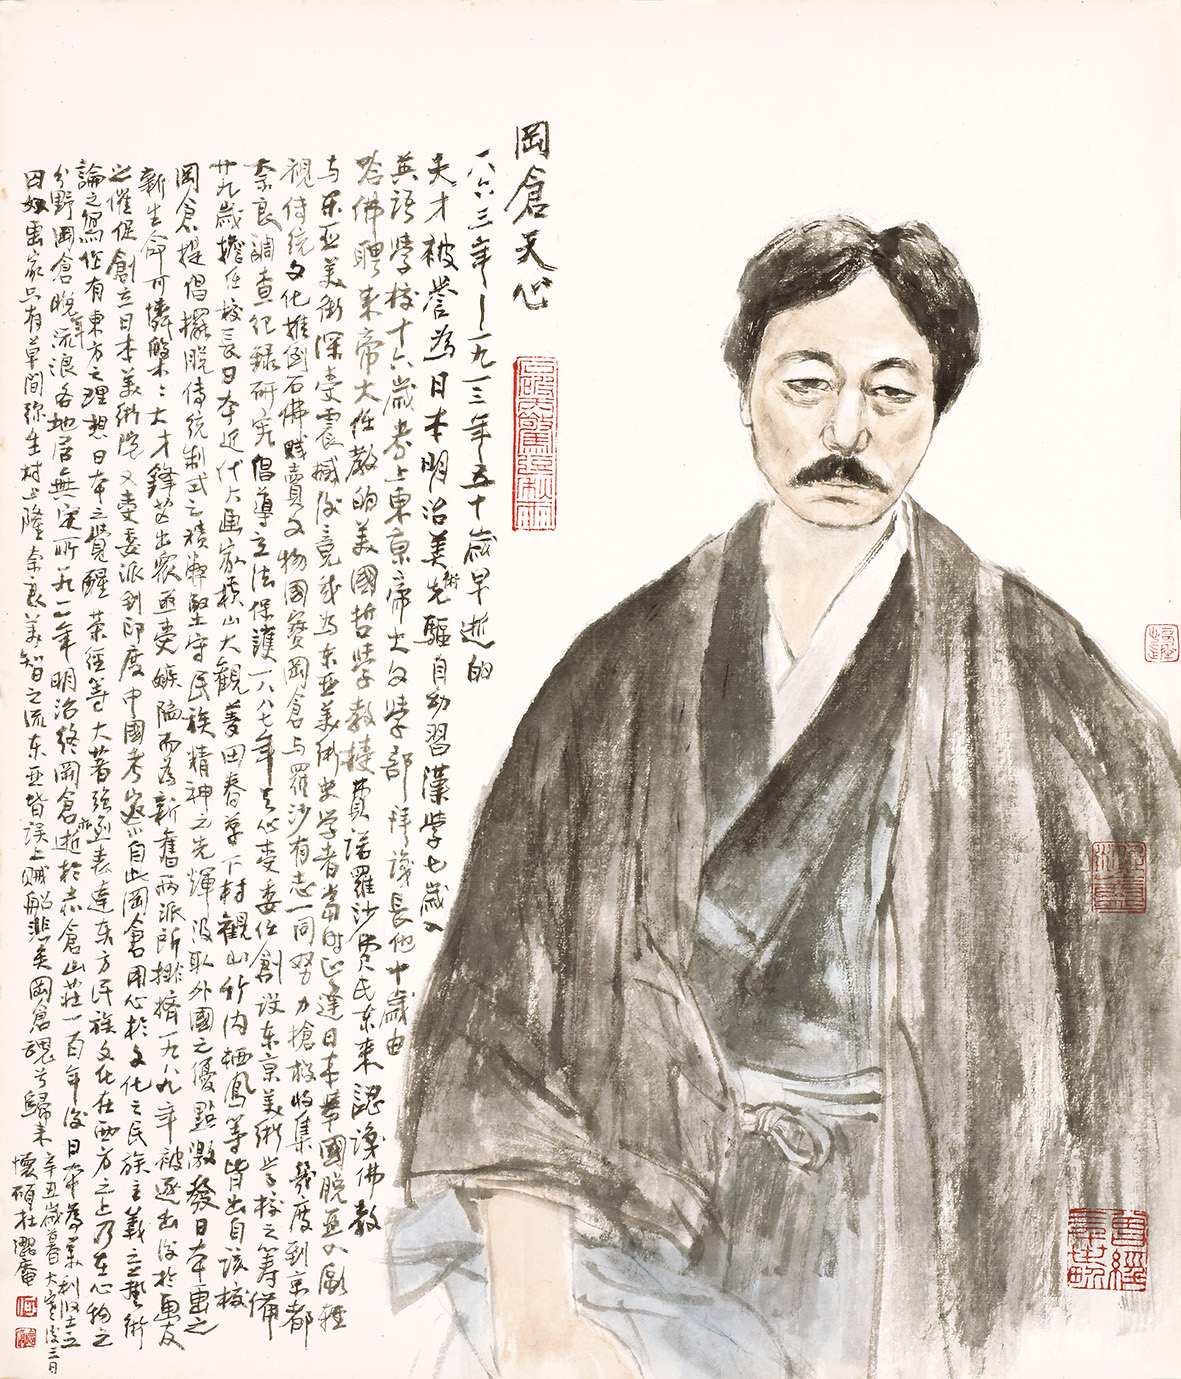 岡倉天心
一八六三年—一九一三年五十歲早逝的
天才被譽為日本明治美術先驅自幼習漢學七歲入
英語學校十六歲考上東京帝大文學部拜識長他十歲由
哈佛聘來帝大任教的美國哲學教授費諾羅沙費氏東來認識佛教
与东亚美術深受震撼後竟成为东亚美術史学者當時正逢日本舉國脫亞入歐輕
視傳統文化推倒石佛賤賣文物國寶岡倉与羅沙有志一同努力搶救收集幾度到京都
奈良調查紀錄研究倡導立法保護一八八七年天心受委任創設东京美術学校之籌備
廿九歲擔任校長日本近代大画家橫山大觀菱田春草下村觀山竹内栖鳳等皆出自该校
岡倉提倡擺脫傳統制式之積弊堅守民族精神之光輝汲取外國之優點激發日本畫之
新生命可憐槃槃大才鋒芒出衆亟受嫉隘而為新舊兩派所排擠一九八九年被逐出後於畫友
之催促創立日本美術院又受委派到印度中國考察自此岡倉用心於文化之民族主義之藝術
論之寫作有東方之理想日本之覺醒茶經等大著強烈表達东方民族文化在西方之上乃在心物之
分野岡倉晚年流浪各地居無定所一九一二年明治終岡倉亦逝於赤倉山莊一百年後日本為美利堅之
日奴畫家只有草間彌生村上隆奈良美智之流东亚皆誤上贼船悲矣岡倉魂兮歸来
辛丑歲暮大寒後三日
懷碩杜澀庵